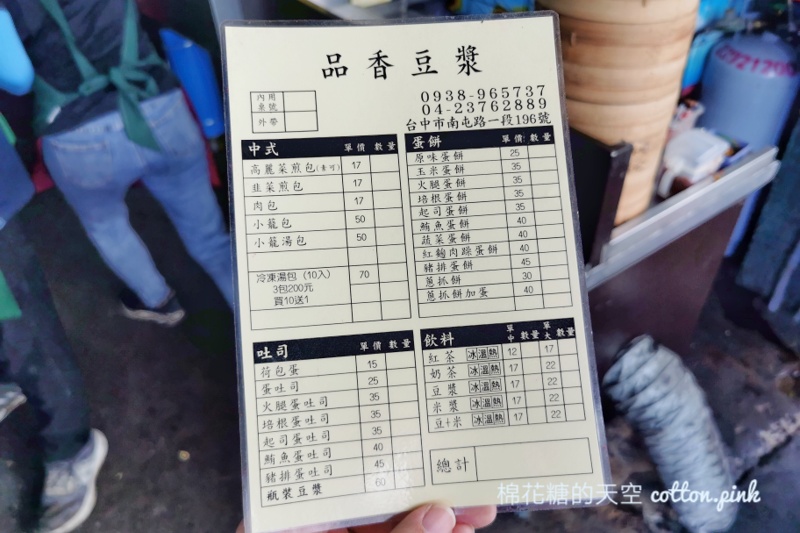 品香豆漿
內用
桌號
外帶
0938-965737
04-23762889
台中市南屯路一段196號
中式 單價 數量
高麗菜煎包(素可) 17
韭菜煎包 17
肉包 17
小籠包 50
小籠湯包 50
冷凍湯包 (10入) 70
3包200元
買10送1
蛋餅 單價 數量
原味蛋餅 25
玉米蛋餅 35
火腿蛋餅 35
培根蛋餅 35
起司蛋餅 35
鮪魚蛋餅 40
蔬菜蛋餅 40
紅麴肉蹂蛋餅 40
豬排蛋餅 45
蔥抓餅 30
蔥抓餅加蛋 40
吐司 單價 數量
荷包蛋 15
蛋吐司 25
火腿蛋吐司 35
培根蛋吐司 35
起司蛋吐司 35
鮪魚蛋吐司 40
豬排蛋吐司 45
瓶裝豆漿 60
飲料 單中 數量 單大 數量
紅茶 冰溫熱 12 17
奶茶 冰溫熱 17 22
豆漿 冰溫熱 17 22
米漿 冰溫熱 17 22
豆+米 冰溫熱 17 22
總計
棉花糖的天空 cotton.pink